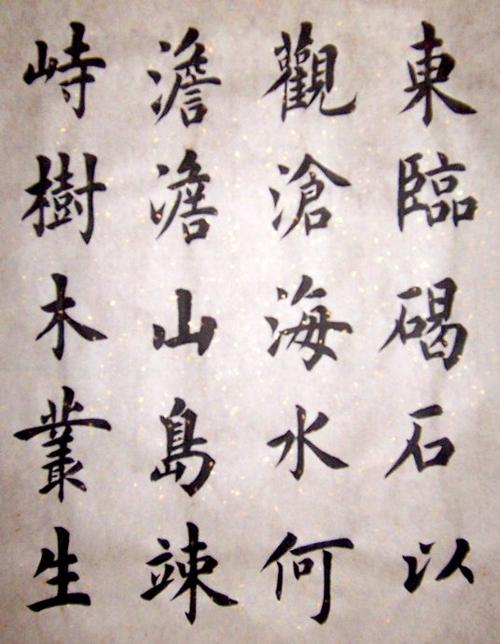 東臨碣石以
觀滄海水何
澹澹山島竦
峙樹木叢生